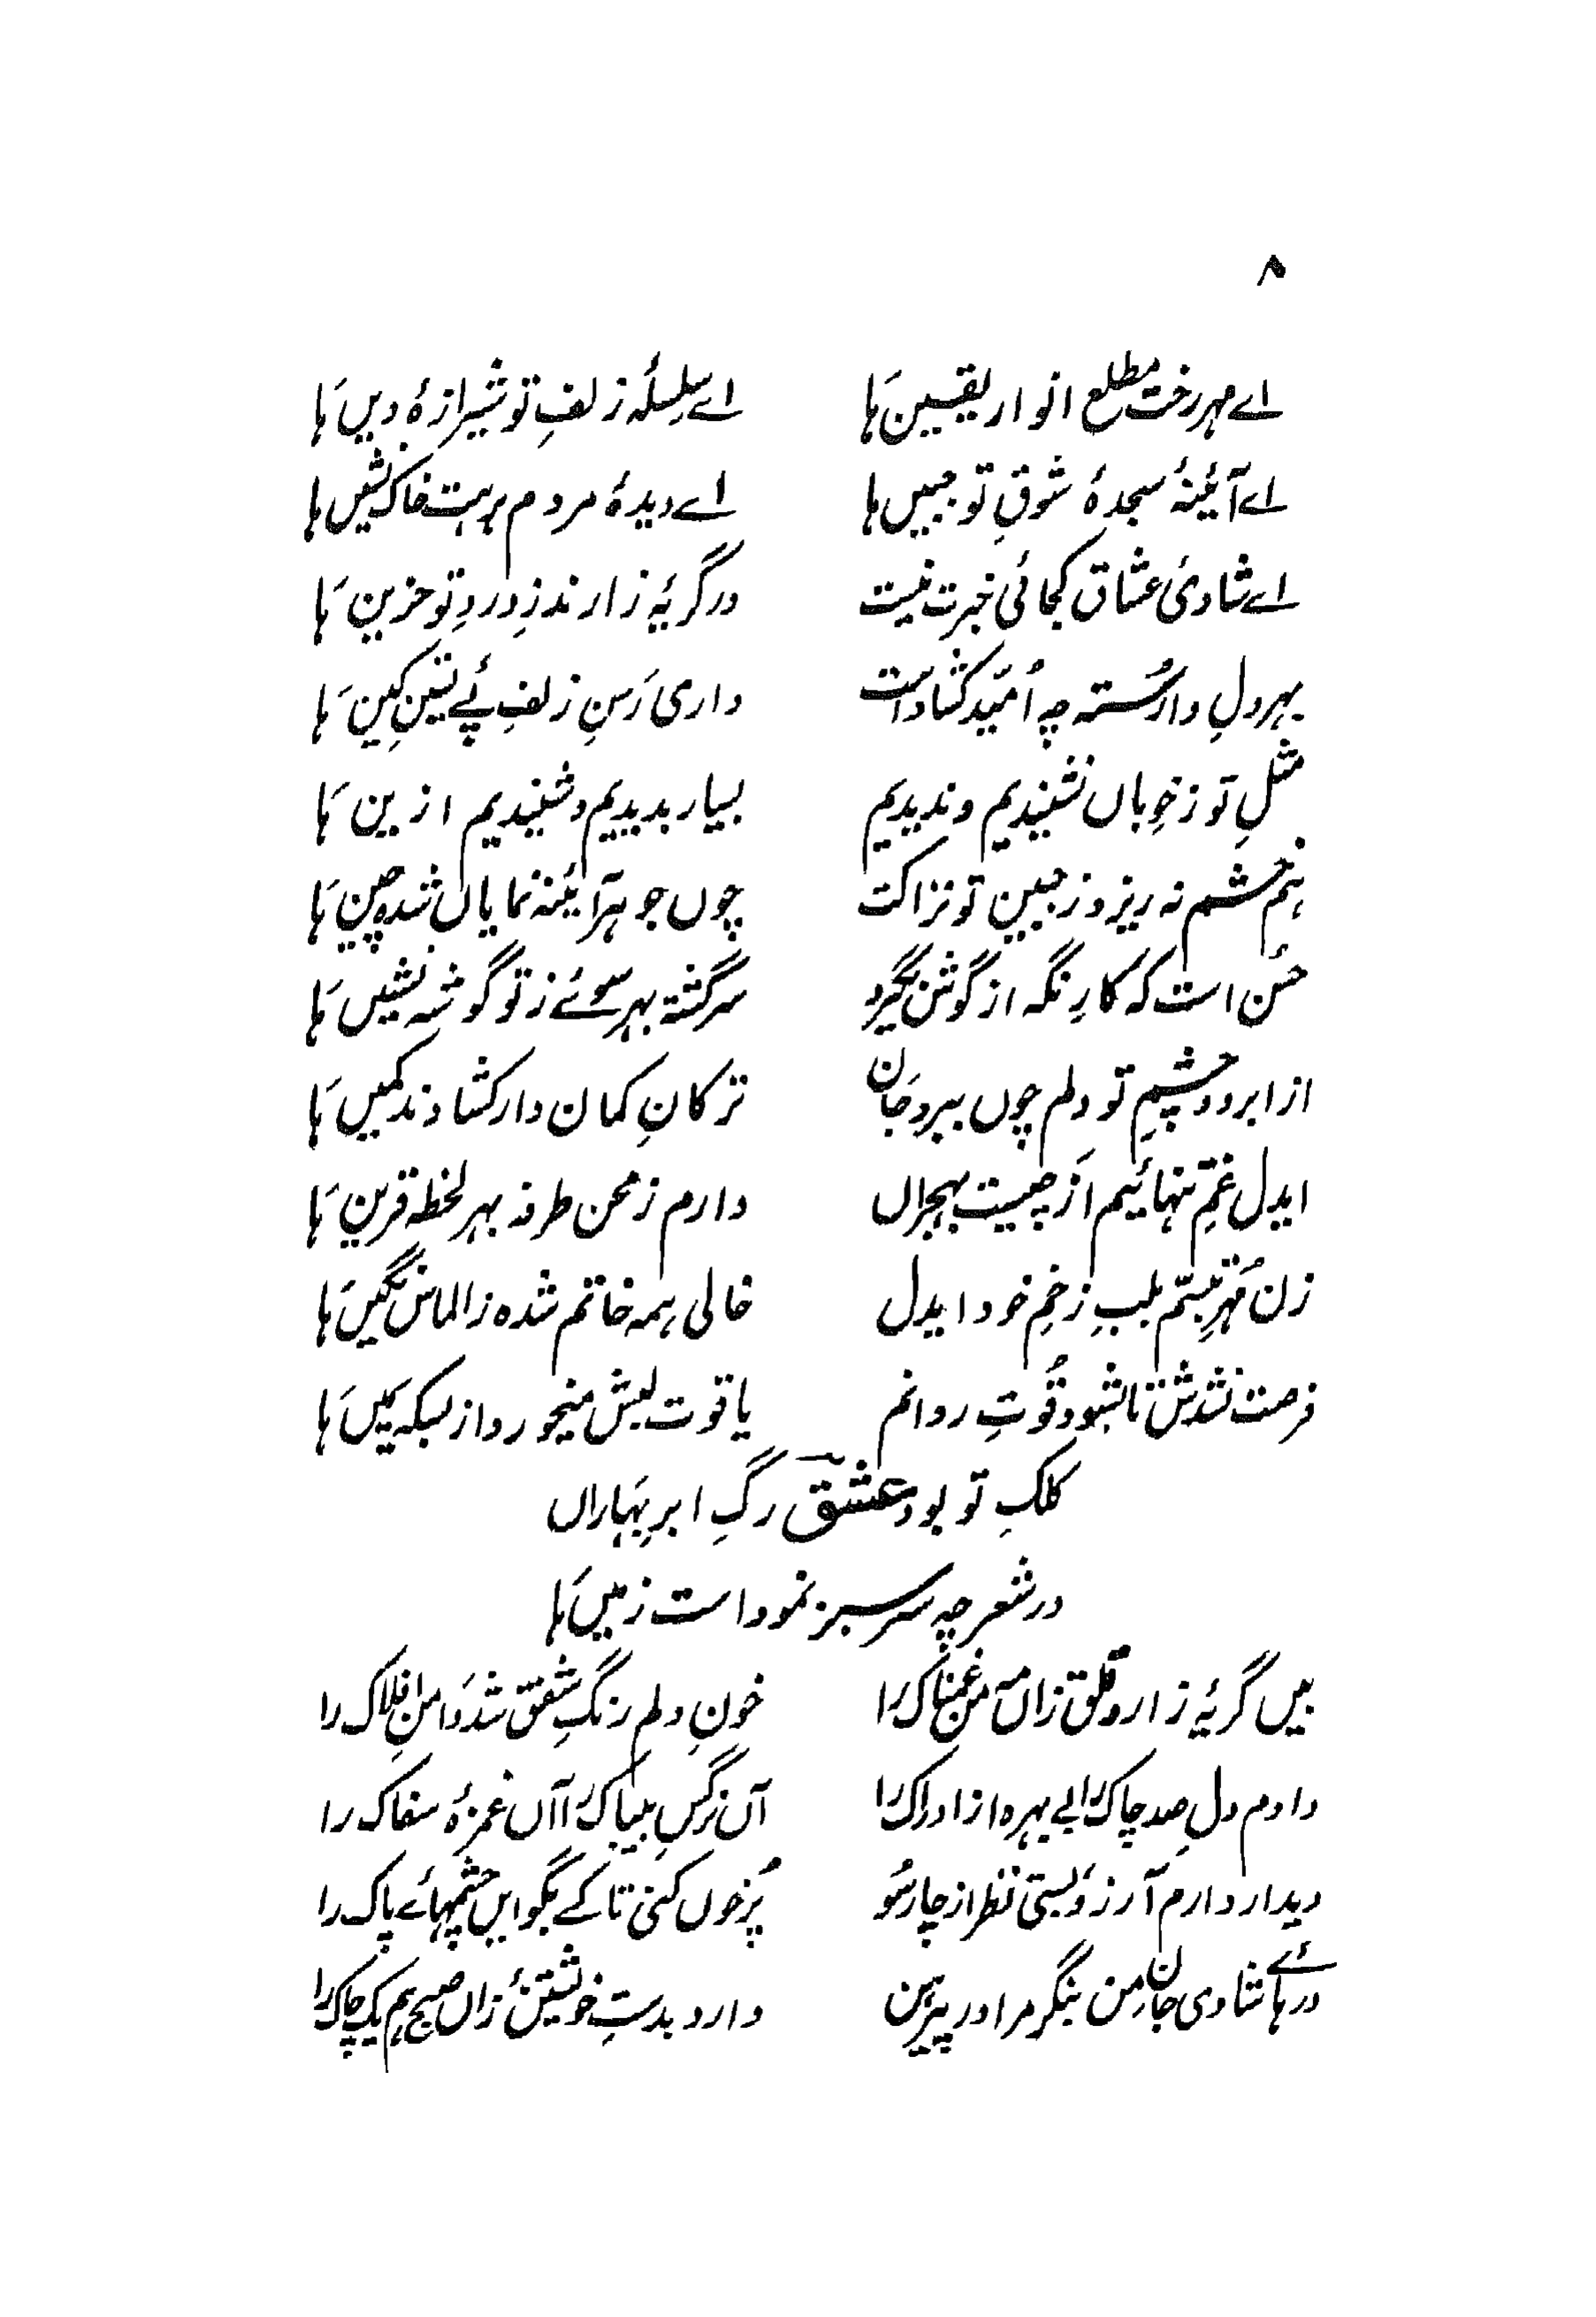 ۸
اے مہر رخت مطلع انوار یقین ہا اے سلسلۂ زلفِ تو شیرازۂ دیں ہا
اے آئینۂ سجدۂ شوقِ تو جبیں ہا اے دیدۂ مردم برہت خاک نشیں ہا
اے شادیٔ عشاق کجائی خبرت نیست در گریۂ زارند زِ دردِ تو حزین ہا
بہر دلِ وارستہ چہ اُمّید کشاد است داری رَسنِ زلفِ پئے بستنِ کیں ہا
مثلِ تو ز خوباں نشنیدیم و ندیدیم بسیار بدیدیم و شنیدیم ازین ہا
ہم چشم نہ ریزد ز جبین تو نزاکت چوں جوہر آئینہ نمایاں شدہ چین ہا
حسن است کہ کارِ نگہ از گوش بگیرد سرگشتہ بہر سوئے ز تو گوشہ نشیں ہا
از ابرو و چشمِ تو دلم چوں ببرد جان ترکانِ کماں دار کشادند کمیں ہا
ایدل غمِ تنہائیم از چیست بہجراں دارم ز محن طرفہ بہر لحظہ قرین ہا
زان مُہرِ تبسّم بلبِ زخمِ خود ایدل خالی ہمہ خاتم شدہ ز الماس نگیں ہا
فرصت نشدش تا بشود قُوتِ روانم یاقوت لبش میخورد از بسکہ یمیں ہا
کلکِ تو بود عشق رگِ ابرِ بہاراں
در شعر چہ سرسبز نموداست زمیں ہا
بیں گریۂ زار و قلق زاں مہ من غمناک را خونِ دلم رنگِ شفق شد دامنِ افلاک را
دادم دلِ صد چاک را بے بہرہ از ادراک را آں نرگسِ بیباک را آں غمزۂ سفاک را
دیدار دارم آرزو بستی نظر از چار سُو پُرخوں کنی تا کے بگو ایں چشمہائے پاک را
درہائے شادی جانِ من بنگر مرا در پیرہن دارد بدستِ خویشتن زاں صبح ہم یک چاک را